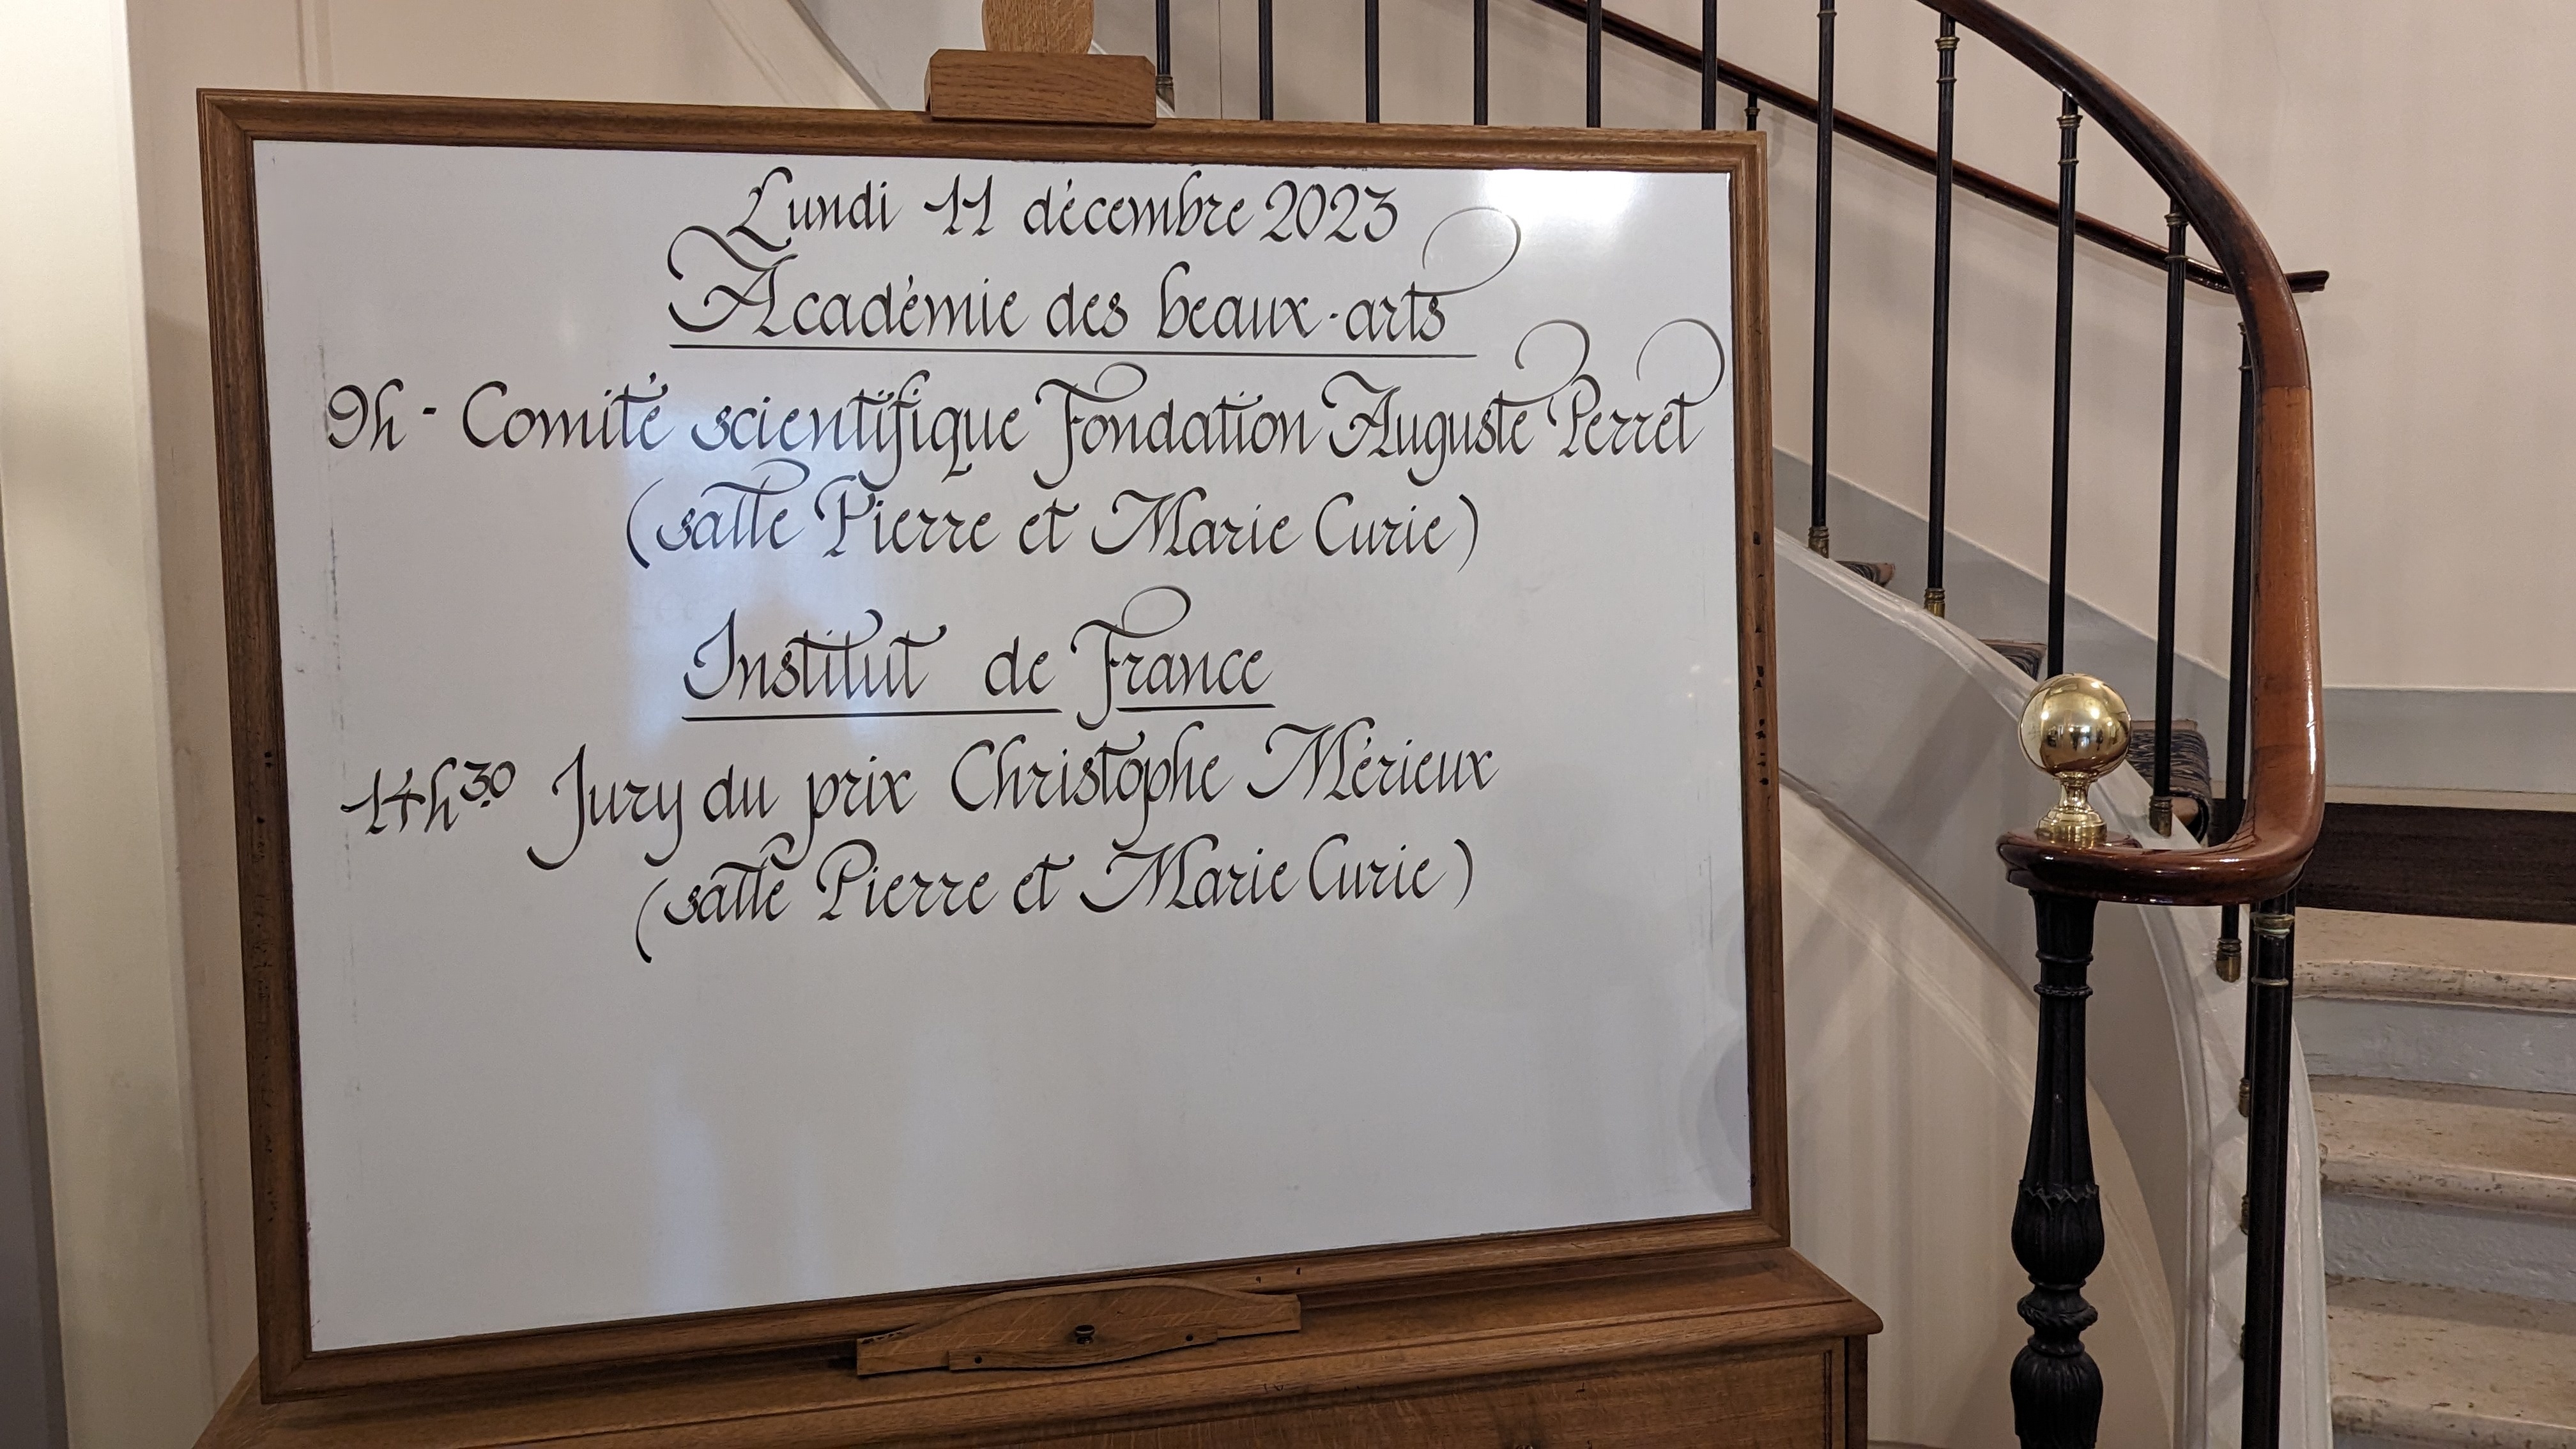 Lundi 11 décembre 2023
Académie des beaux-arts
9h - Comité scientifique Fondation Auguste Perret
(salle Pierre et Marie Curie)
Institut de France
14h30 Jury du prix Christophe Mérieux
(salle Pierre et Marie Curie)